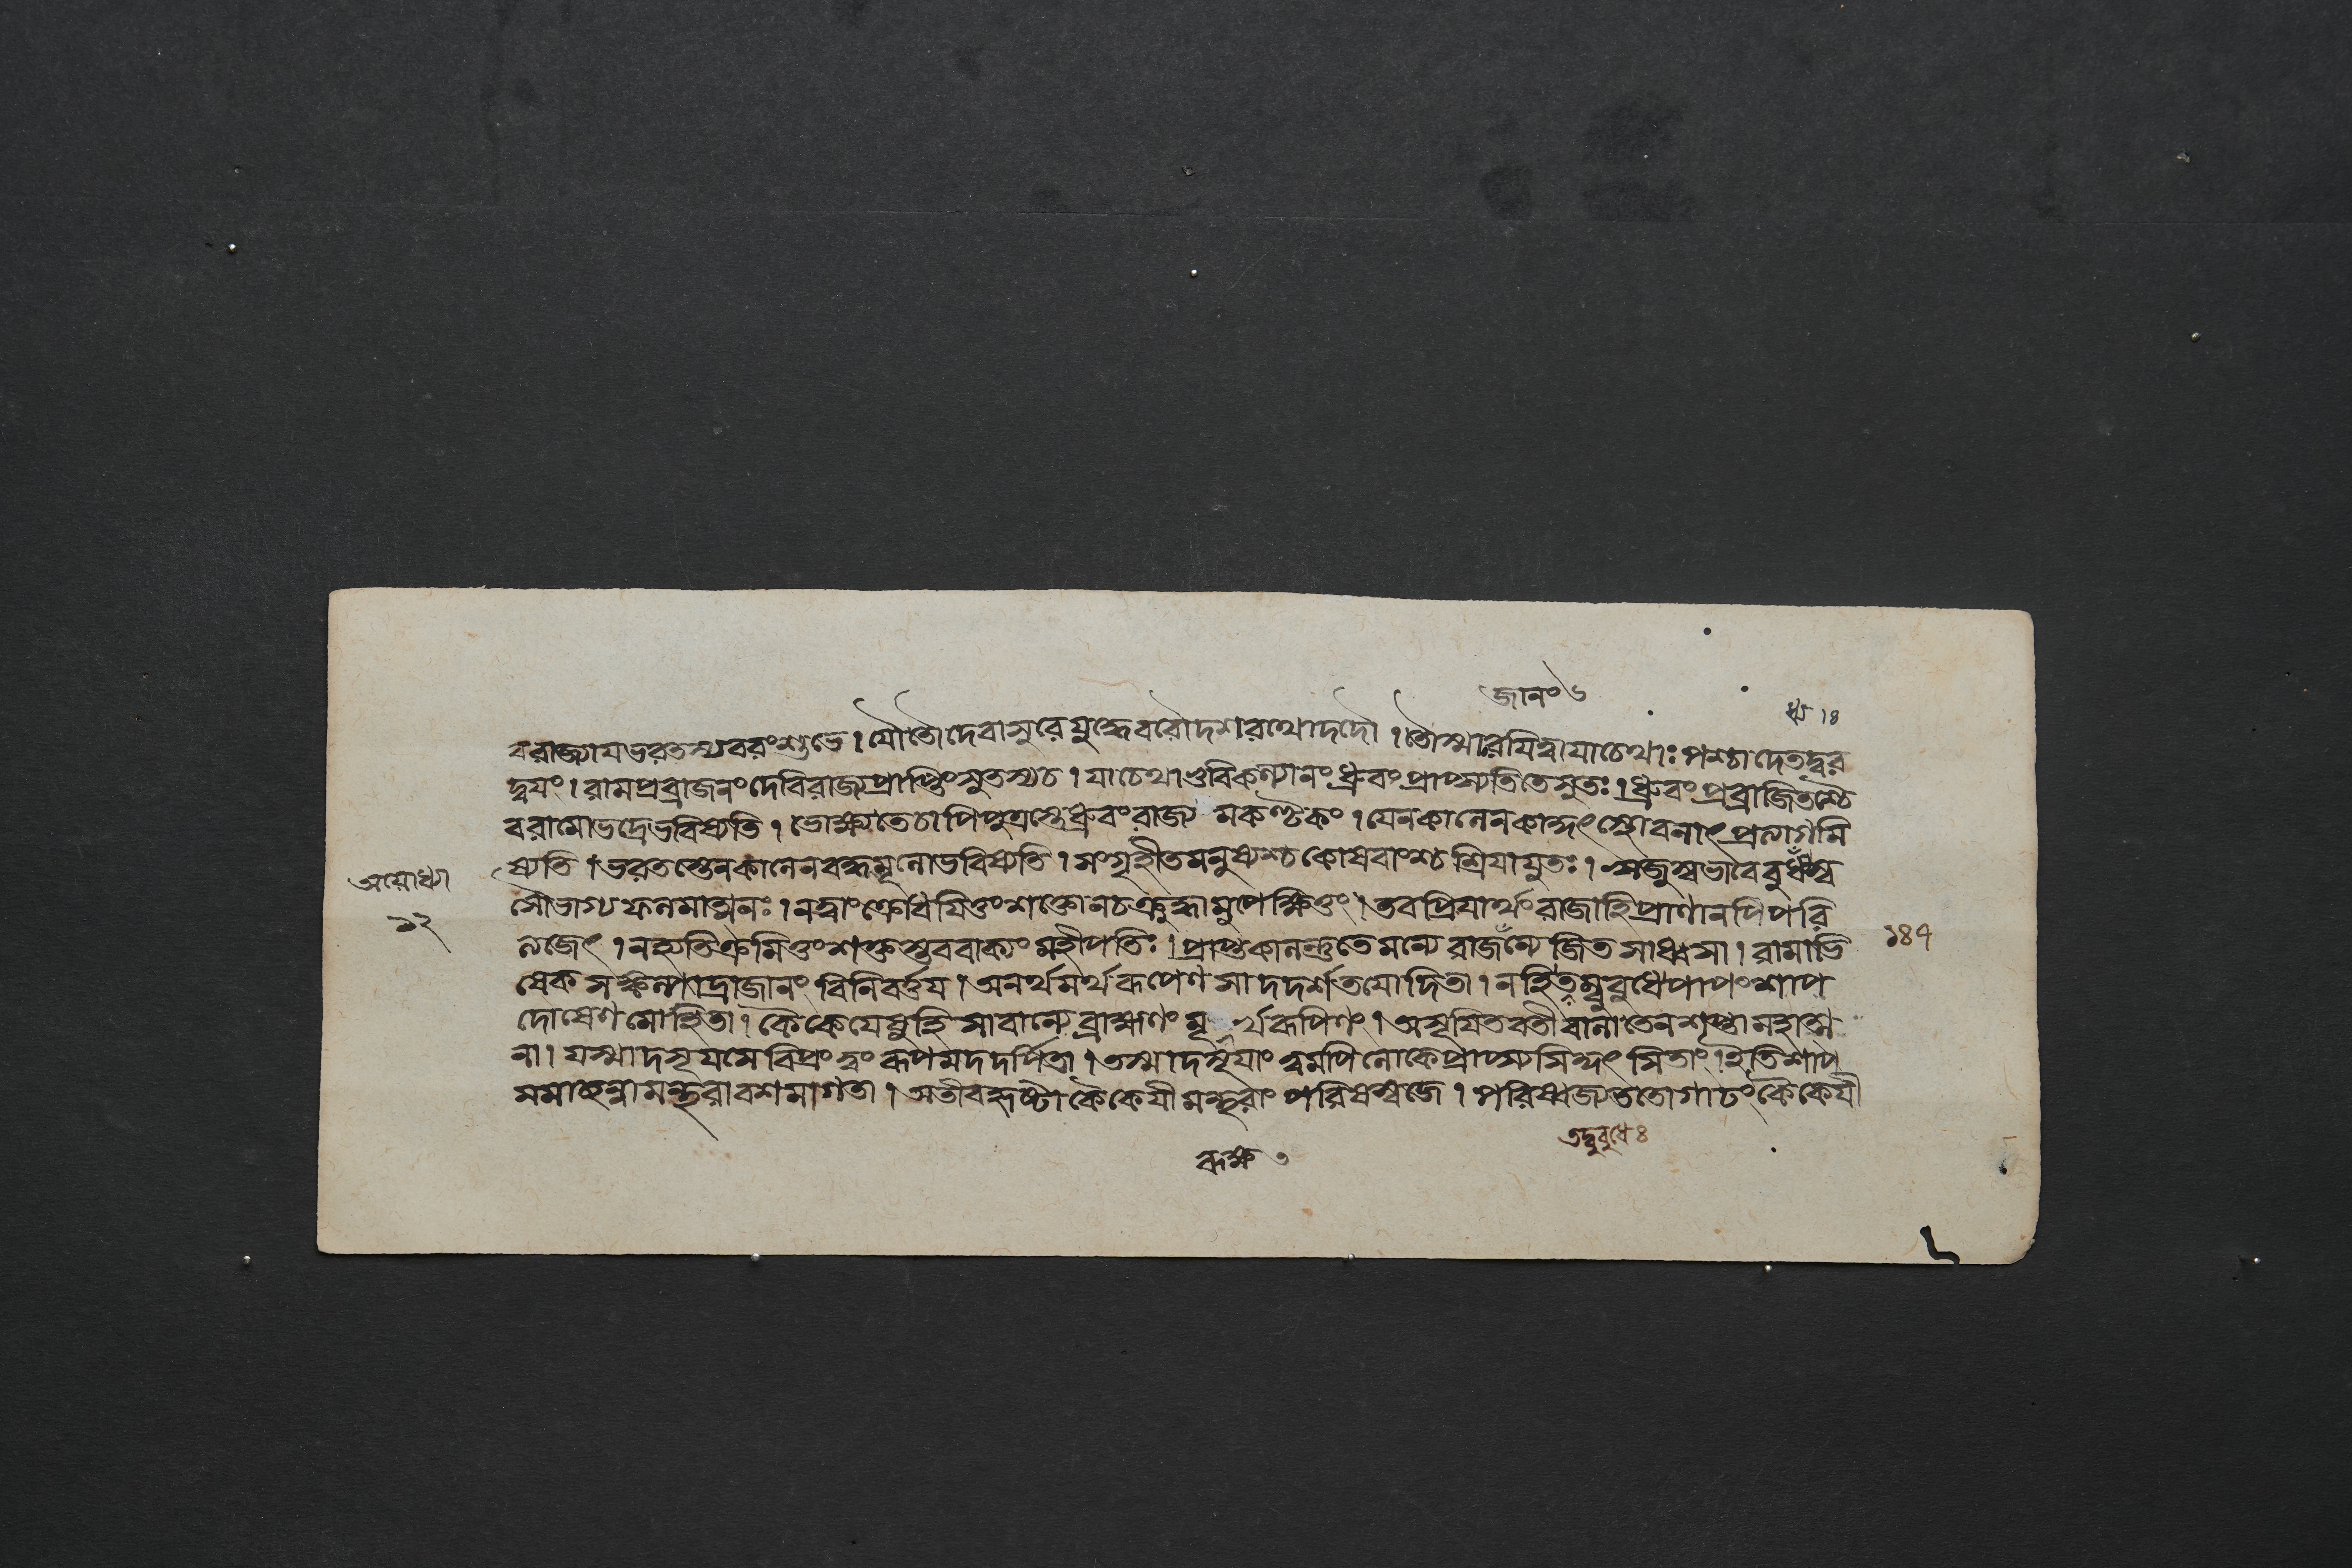 জানং ৬
ধ্ব ।৪
বরাজ্যায ভরতস্য বরং শুভে । যৌ তৌ দেবাসুরে যুদ্ধে বরৌ দশরথো দদৌ । তৌ স্মারযিত্বা যাচেথাঃ পশ্চাদেতদ্বর
দ্বযং । রামপ্রব্রাজনং দেবি রাজ্যপ্রাপ্তিং সুতস্য চ । যাচেথা ধ্রুবং প্রাপ্স্যতি তে সুতঃ । ধ্রুবং প্রব্রাজিতশ্চৈ
ব রামো ভদ্রে ভবিষ্যতি । ভোক্ষ্যতে চাপি পুত্রস্তে ধ্রুবং রাজ্যমকণ্টকং । যেন কালেন বনাৎ প্রত্যাগমি
ষ্যতি । ভরতস্তেন কালেন বদ্ধমূলো ভবিষ্যতি । সংগৃহীতমনুষ্যশ্চ কোষবাংশ্চ শ্রিযা যুতঃ । ঋজুস্বভাবে বুধ্যস্ব
সৌভাগ্যফলমাত্মনঃ । ন ত্বাং ক্রোধযিতুং শক্তো ন চ ক্রুদ্ধামুপেক্ষিতুং । তব প্রিযার্থং রাজা হি প্রাণানপি পরি
ত্যজেৎ । ন হ্যতিক্রমিতুং শক্তস্তব বাক্যং মহীপতিঃ । প্রাপ্তকালন্তু তে মন্যে জিতসাধ্বসা । রামাভি
ষেক রাজানং বিনিবর্ত্তয । অনর্থমর্থরূপেণ সা দদর্শ তযোদিতা । ন হি পাপং শাপ
দোষেণ মোহিতা । কৈকেযেষু হি সা বাল্যে ব্রাহ্মণং মূর্খরূপিণং । অসূযিতবতী বালা তেন শপ্তা মহাত্ম
না । যস্মাদসূযসে বিপ্রং ত্বং রূপমদদর্পিতা । তস্মাদসূযাং ত্বমপি লোকে প্রাপ্স্যসি ইতি শাপ
সমাচ্ছন্না মন্থরাবশমাগতা । অতীব হৃষ্টা কৈকেযী মন্থরাং পরিষস্বজে । পরিষ্বজ্য ততো গাঢং কৈকেযী
অযোধ্যা
১২
১৪৭
তদ্বুবুধে ৪